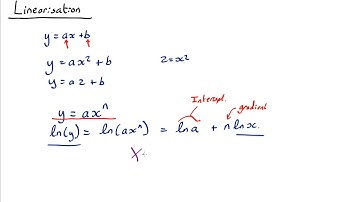 Linearisation
y = ax + b
y = ax² + b z = x²
y = az + b
y = axⁿ Intercept. gradient
ln(y) = ln(axⁿ) = ln a + n ln x.
X